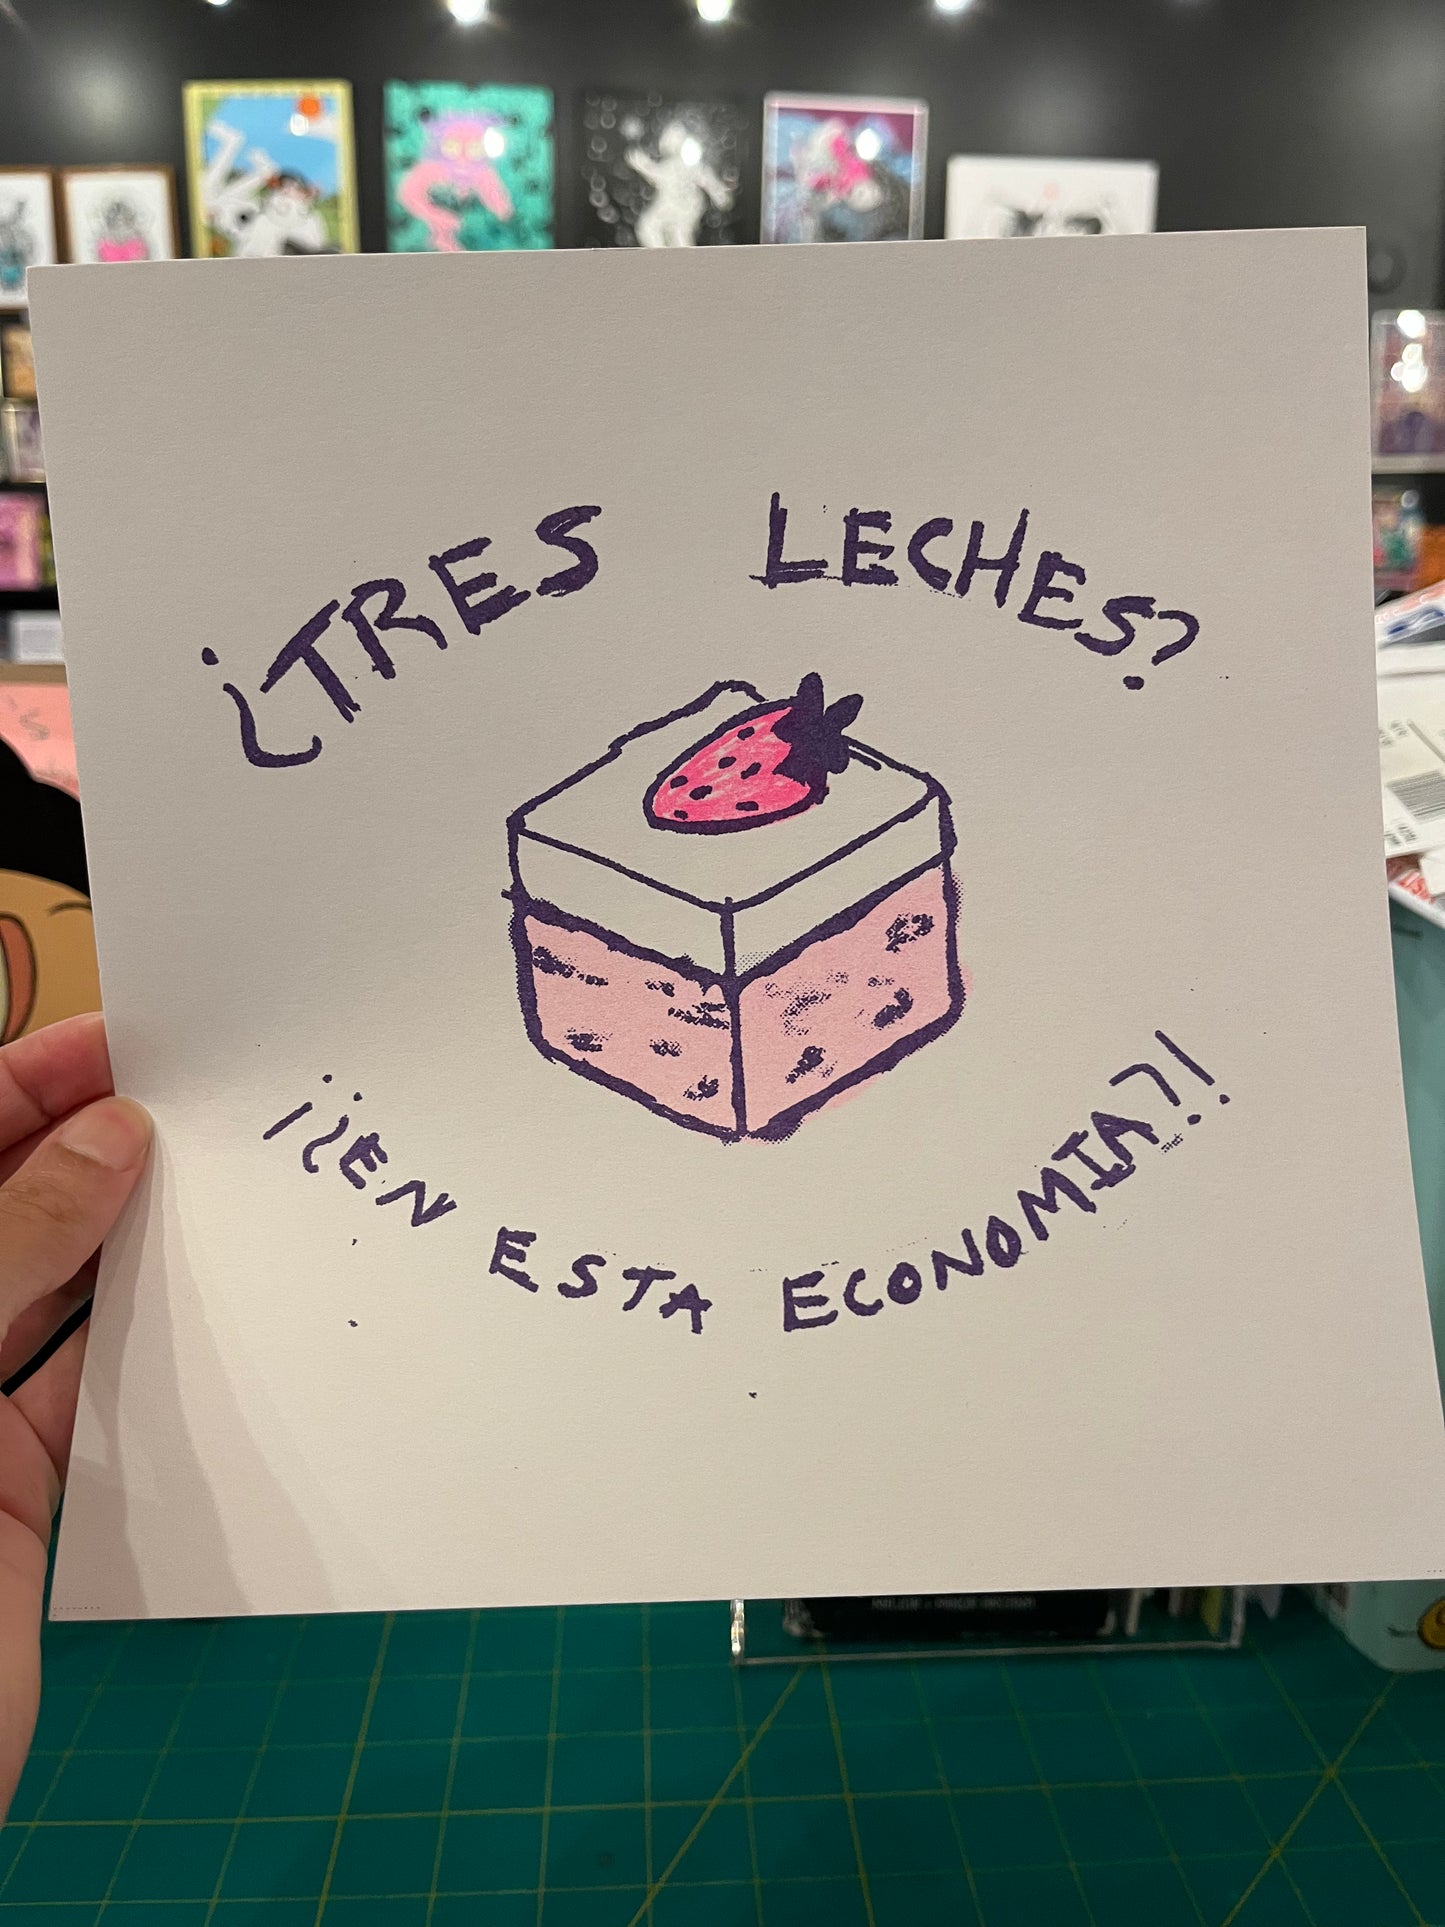 ¿TRES LECHES?
¡¿EN ESTA ECONOMIA?!